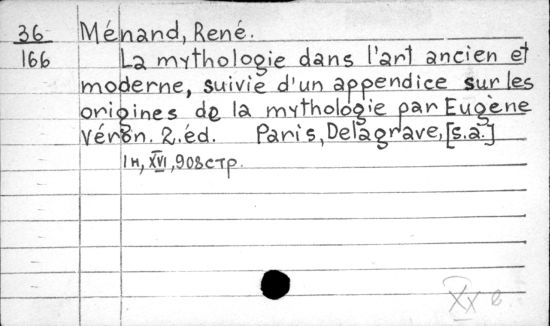 36 Ménand, René.
166 La mythologie dans l'art ancien et
moderne, suivie d'un appendice sur les
origines de la mythologie par Eugène
Véron. 2.éd. Paris, Delagrave, [s.a.]
1н, XVI, 908стр.
XX в